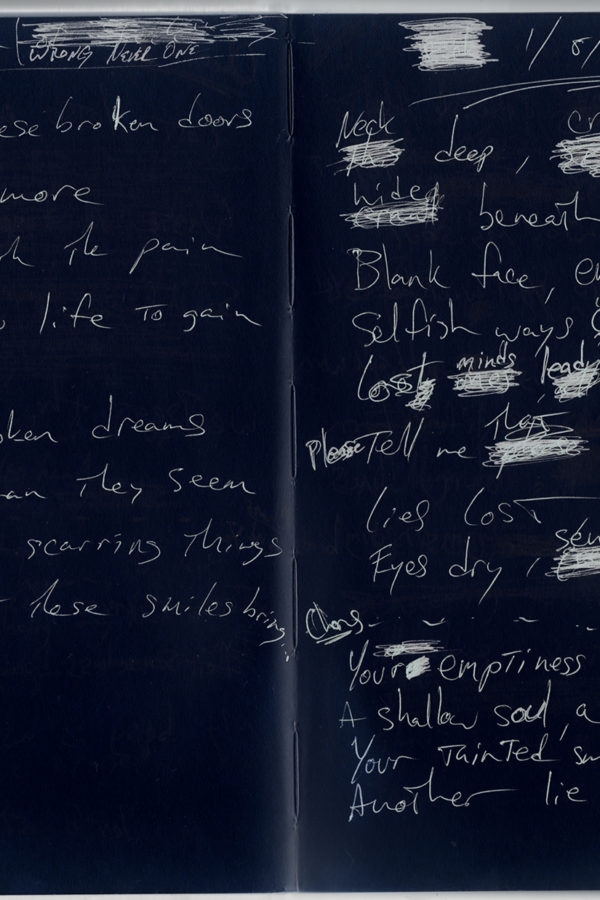 WRONG NEVER ONE
ese broken doors
more
h the pain
life to gain
ken dreams
an They seem
scarring Things
these smiles bring
1/8/
Neck deep, cr
hide beneath
Blank face, e
Selfish ways
lost minds, lead
Please Tell me that
Lies Lost
Eyes dry, sew
Chorus
Your emptiness
A shallow soul, a
Your Tainted sm
Another lie